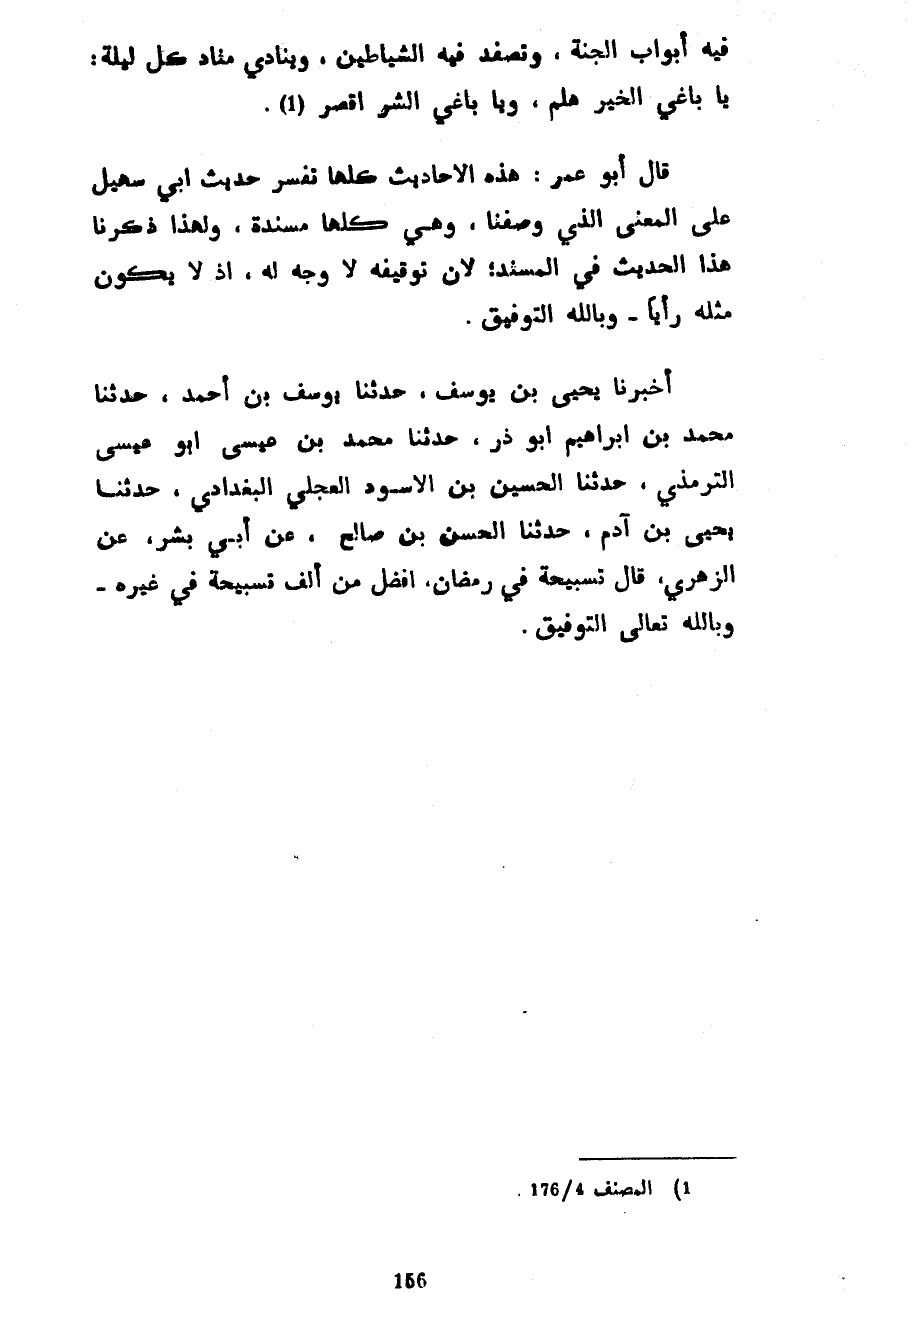 فيه أبواب الجنة ، وتصفد فيه الشياطين ، وينادي مناد كل ليلة :
يا باغي الخير هلم ، ويا باغي الشر اقصر (1) .
قال أبو عمر : هذه الاحاديث كلها تفسر حديث ابي سهيل
على المعنى الذي وصفنا ، وهي كلها مسندة ، ولهذا ذكرنا
هذا الحديث في المسند؛ لان توقيفه لا وجه له ، اذ لا يكون
مثله رأيا ـ وبالله التوفيق .
أخبرنا يحيى بن يوسف ، حدثنا يوسف بن أحمد ، حدثنا
محمد بن ابراهيم ابو ذر ، حدثنا محمد بن عيسى ابو عيسى
الترمذي ، حدثنا الحسين بن الاسود العجلي البغدادي ، حدثنا
يحيى بن آدم ، حدثنا الحسن بن صالح ، عن أبي بشر، عن
الزهري، قال تسبيحة في رمضان، افضل من ألف تسبيحة في غيره ـ
وبالله تعالى التوفيق .
1) المصنف 176/4 .
156